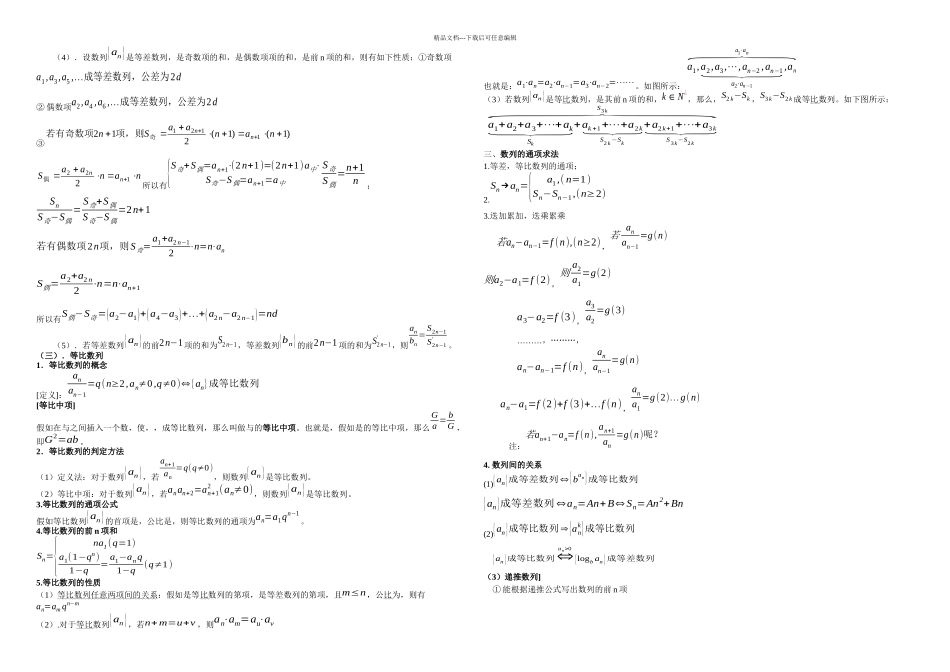 精品文档---下载后可任意编辑
（4）．设数列{a_n}是等差数列，是奇数项的和，是偶数项项的和，是前 n 项的和，则有如下性质：①奇数项
a_1,a_3,a_5,…成等差数列，公差为2d
② 偶数项a_2,a_4,a_6,…成等差数列，公差为2d
③若有奇数项2n+1项，则S_奇=(a_1+a_{2n+1})/2·(n+1)=a_{n+1}·(n+1)
S_偶=(a_2+a_{2n})/2·n=a_{n+1}·n 所以有{S_奇+S_偶=a_{n+1}·(2n+1)=(2n+1)a_中, S_奇−S_偶=a_{n+1}=a_中 S_奇/S_偶=(n+1)/n；
S_n/(S_奇−S_偶)=(S_奇+S_偶)/(S_奇−S_偶)=2n+1
若有偶数项2n项，则S_奇=(a_1+a_{2n−1})/2·n=n·a_n
S_偶=(a_2+a_{2n})/2·n=n·a_{n+1}
所以有S_偶−S_奇=(a_2−a_1)+(a_4−a_3)+…+(a_{2n}−a_{2n−1})=nd
（5）．若等差数列{a_n}的前2n−1项的和为S_{2n−1}，等差数列{b_n}的前2n−1项的和为S'_{2n−1}，则a_n/b_n=S_{2n−1}/S'_{2n−1}。
（三）．等比数列
1．等比数列的概念
[定义]：a_n/a_{n−1}=q(n≥2,a_n≠0,q≠0)⇔{a_n}成等比数列
[等比中项]
假如在与之间插入一个数，使，，成等比数列，那么叫做与的等比中项。也就是，假如是的等比中项，那么G/a=b/G，
即G²=ab。
2．等比数列的判定方法
（1）定义法：对于数列{a_n}，若a_{n+1}/a_n=q(q≠0)，则数列{a_n}是等比数列。
（2）等比中项：对于数列{a_n}，若a_n a_{n+2}=a²_{n+1}(a_n≠0)，则数列{a_n}是等比数列。
3.等比数列的通项公式
假如等比数列{a_n}的首项是，公比是，则等比数列的通项为a_n=a_1q^{n−1}。
4.等比数列的前 n 项和
S_n={na_1(q=1), a_1(1−q^n)/(1−q)=(a_1−a_nq)/(1−q)(q≠1)
5.等比数列的性质
（1）等比数列任意两项间的关系：假如是等比数列的第项，是等差数列的第项，且m≤n，公比为，则有
a_n=a_mq^{n−m}
（2）.对于等比数列{a_n}，若n+m=u+v，则a_n·a_m=a_u·a_v
也就是：a_1·a_n=a_2·a_{n−1}=a_3·a_{n−2}=⋯⋯。如图所示：a_1,a_2,a_3,⋯,a_{n−2},a_{n−1},a_n a_1·a_n a_2·a_{n−1}
（3）若数列{a_n}是等比数列，是其前 n 项的和，k∈N*，那么，S_{2k}−S_k，S_{3k}−S_{2k}成等比数列。如下图所示：
S_{3k}
a_1+a_2+a_3+⋯+a_k+a_{k+1}+⋯+a_{2k}+a_{2k+1}+⋯+a_{3k}
S_k S_{2k}−S_k S_{3k}−S_{2k}
三、数列的通项求法
1.等差，等比数列的通项；
2.S_n→a_n={a_1,(n=1) S_n−S_{n−1},(n≥2)
3.迭加累加，迭乘累乘
若a_n−a_{n−1}=f(n),(n≥2)，若a_n/a_{n−1}=g(n)
则a_2−a_1=f(2)，则a_2/a_1=g(2)
a_3−a_2=f(3)，a_3/a_2=g(3)
………，………，
a_n−a_{n−1}=f(n)，a_n/a_{n−1}=g(n)
a_n−a_1=f(2)+f(3)+…f(n)，a_n/a_1=g(2)…g(n)
注：若a_{n+1}−a_n=f(n),a_{n+1}/a_n=g(n)呢?
4. 数列间的关系
(1){a_n}成等差数列⇔{b^{a_n}}成等比数列
{a_n}成等差数列⇔a_n=An+B⇔S_n=An²+Bn
(2){a_n}成等比数列⇒{a_n^k}成等比数列
{a_n}成等比数列⇔(a_n>0){log_b a_n}成等差数列
（3）递推数列]
① 能根据递推公式写出数列的前 n 项